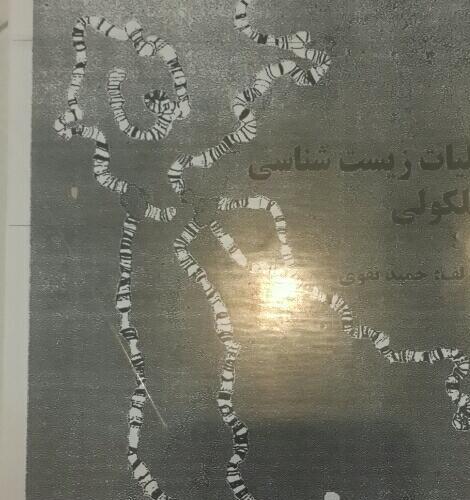 لیات زیست شناسی
لکولی
لف: حمید نقوی